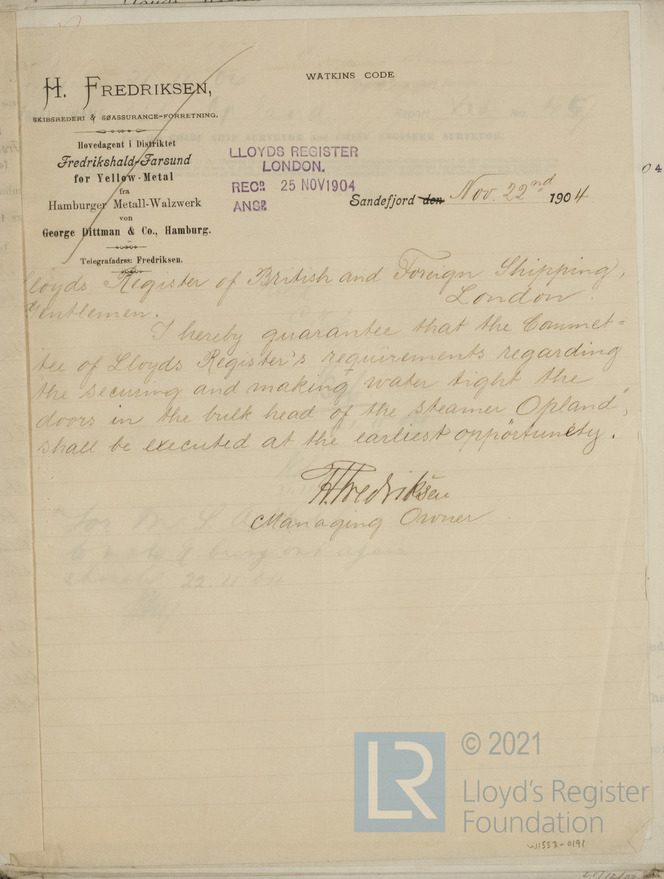 H. FREDRIKSEN,
SKIBSREDERI & SØASSURANCE-FORRETNING.
Hovedagent i Distriktet
Fredrikshald-Farsund
for Yellow-Metal
fra
Hamburger Metall-Walzwerk
von
George Dittman & Co., Hamburg.
Telegrafadrss: Fredriksen.
WATKINS CODE
LLOYDS REGISTER
LONDON.
RECD. 25 NOV 1904
ANSD.
04
Sandefjord den Nov. 22nd 1904
Lloyds Register of British and Foreign Shipping,
London.
Gentlemen.
I hereby guarantee that the Commet=
tee of Lloyds Register's requirements regarding
the securing and making water tight the
doors in the bulk head of the steamer Opland",
shall be executed at the earliest opportunety.
H. Fredriksen
Managing Owner
22.11.04
LR
© 2021
Lloyd's Register
Foundation
W1552-0191